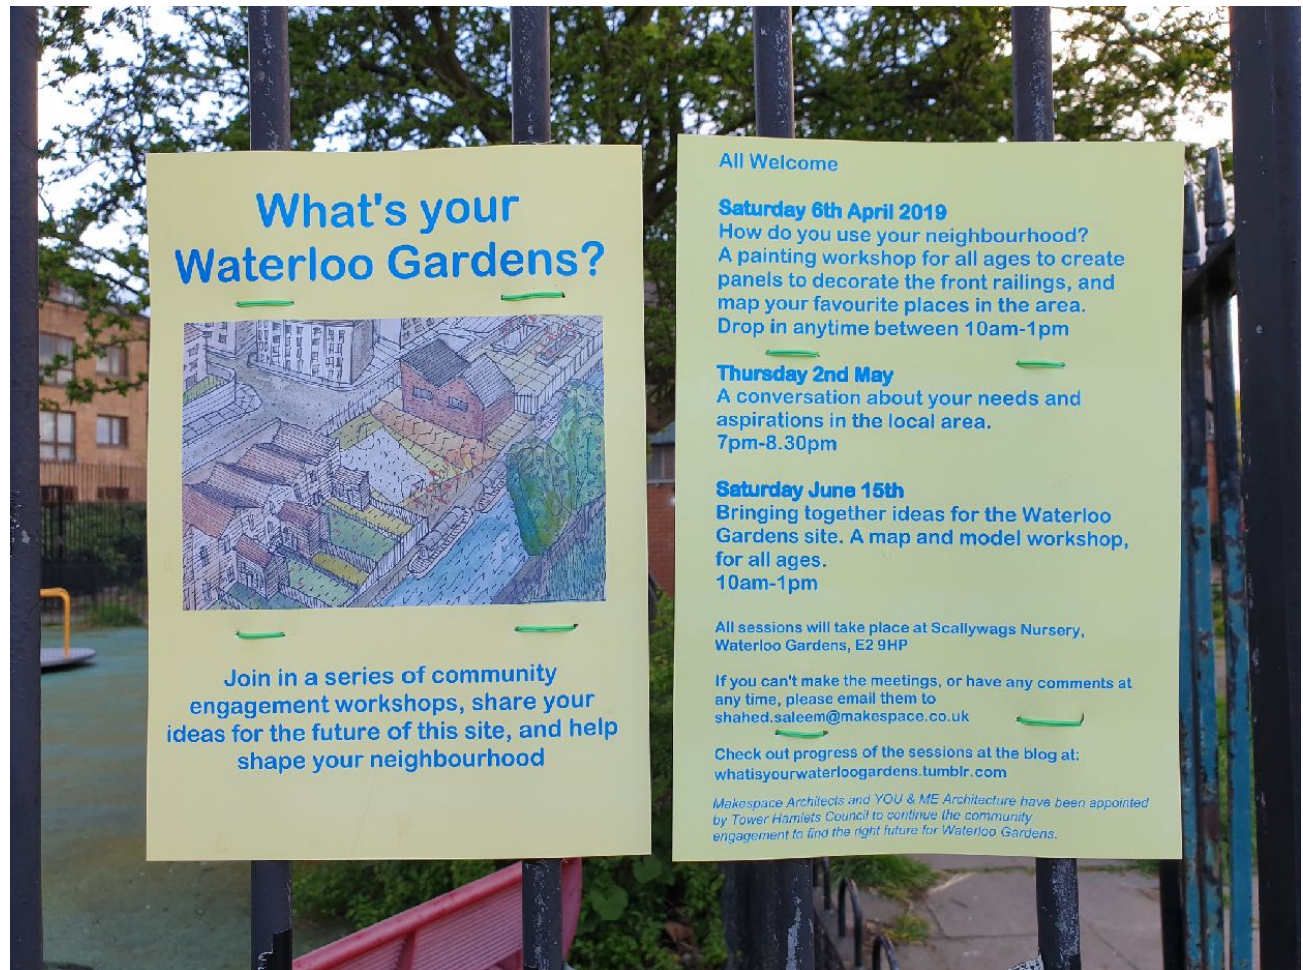 What's your
Waterloo Gardens?
Join in a series of community
engagement workshops, share your
ideas for the future of this site, and help
shape your neighbourhood
All Welcome
Saturday 6th April 2019
How do you use your neighbourhood?
A painting workshop for all ages to create
panels to decorate the front railings, and
map your favourite places in the area.
Drop in anytime between 10am-1pm
Thursday 2nd May
A conversation about your needs and
aspirations in the local area.
7pm-8.30pm
Saturday June 15th
Bringing together ideas for the Waterloo
Gardens site. A map and model workshop,
for all ages.
10am-1pm
All sessions will take place at Scallywags Nursery,
Waterloo Gardens, E2 9HP
If you can't make the meetings, or have any comments at
any time, please email them to
shahed.saleem@makespace.co.uk
Check out progress of the sessions at the blog at:
whatisyourwaterloogardens.tumblr.com
Makespace Architects and YOU & ME Architecture have been appointed
by Tower Hamlets Council to continue the community
engagement to find the right future for Waterloo Gardens.